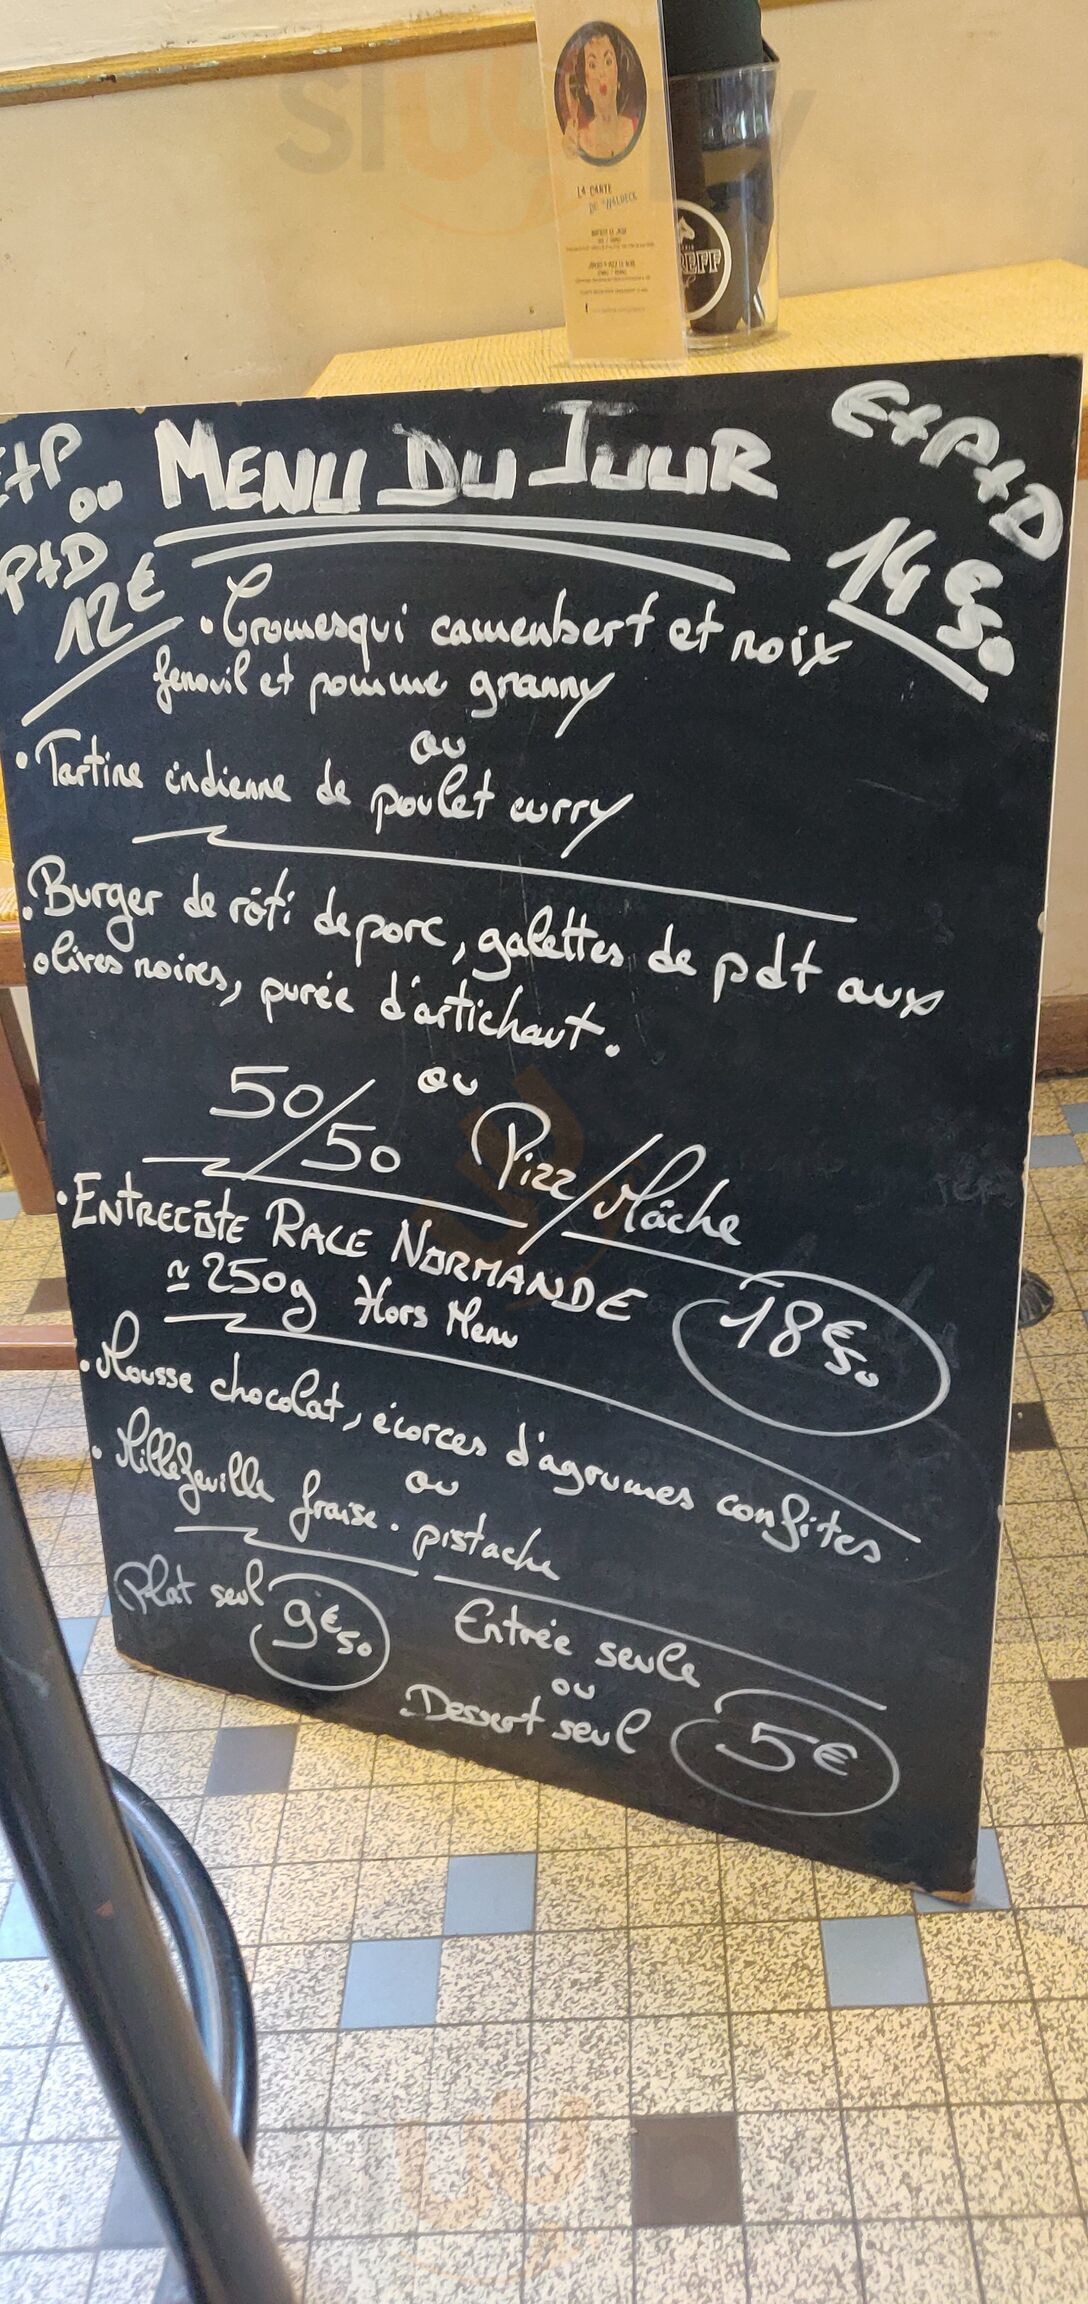 LA CARTE
DE WALDECK
E+P
ou
P+D
12€
MENU DU JOUR
E+P+D
14€50
• Cromesqui camembert et noix
fenouil et pomme granny
ou
• Tartine indienne de poulet curry
• Burger de rôti de porc, galettes de pdt aux
olives noires, purée d'artichaut.
ou
50/50 Pizz/Mâche
• ENTRECÔTE RACE NORMANDE
≃ 250g Hors Menu
18€50
• Mousse chocolat, écorces d'agrumes confites
ou
• Millefeuille fraise . pistache
Plat seul 9€50
Entrée seule
ou
Dessert seul
5€